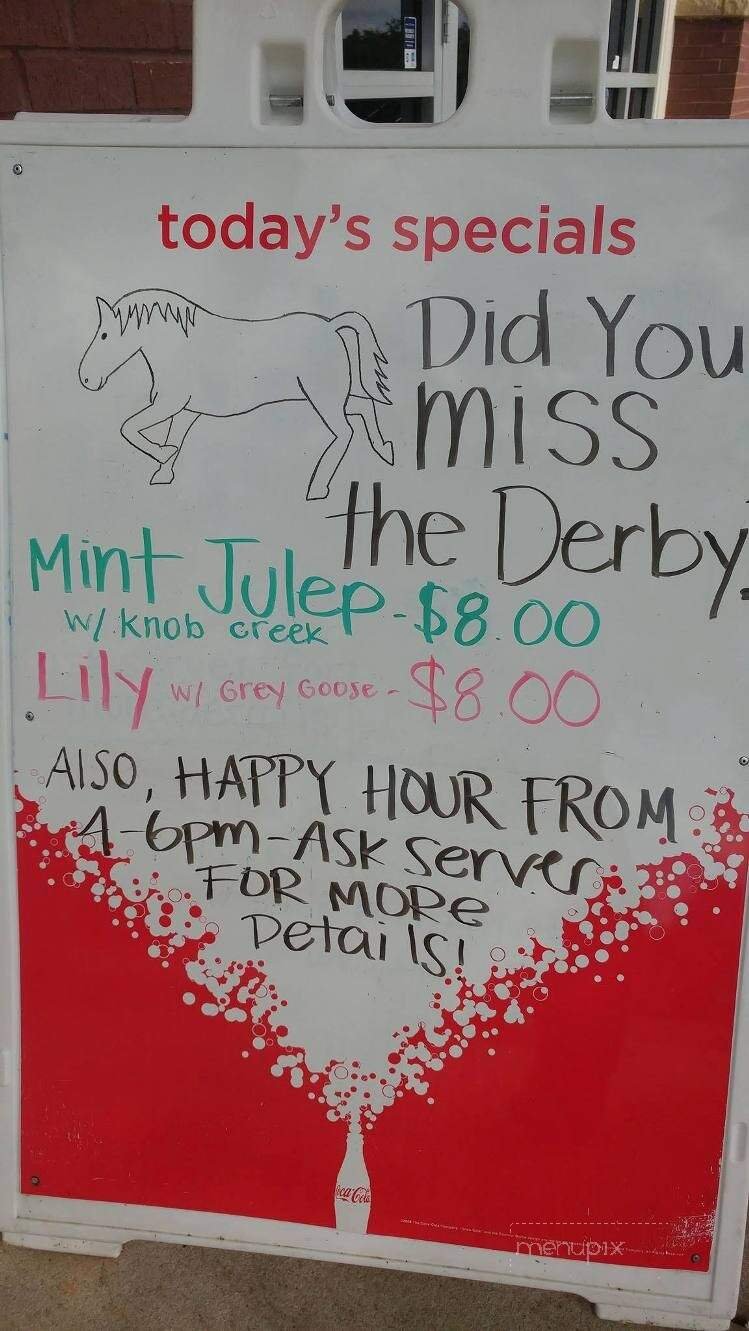 today's specials
Did You
miss
the Derby?
Mint Julep - $8.00
w/ knob creek
Lily w/ Grey Goose - $8.00
Also, HAPPY HOUR FROM
4-6pm - ASK server
FOR MORe
Details!
Coca-Cola
menupix